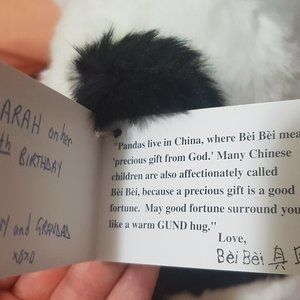 ARAH on her
th BIRTHDAY
and GRANDAD
xoxo
"Pandas live in China, where Bèi Bèi
'precious gift from God.' Many Chinese
children are also affectionately called
Bèi Bèi, because a precious gift is a good
fortune. May good fortune surround you
like a warm GUND hug."
Love,
Bèi Bèi 貝